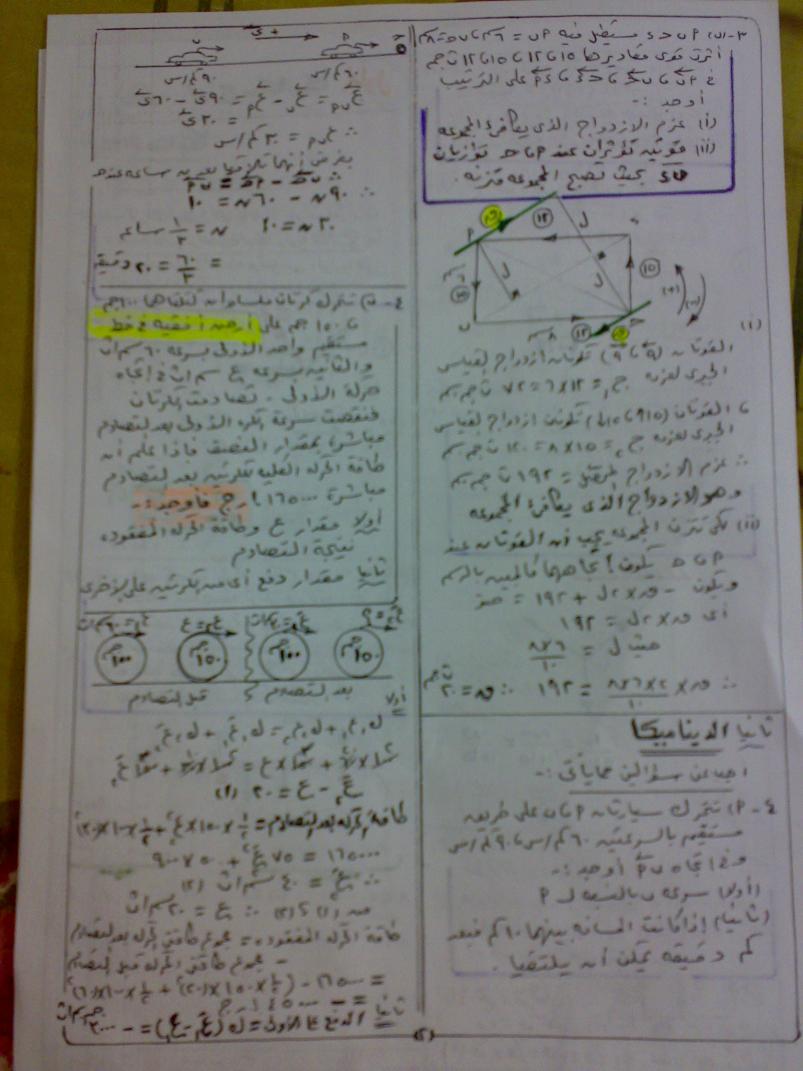 ٣- (ب) ٢ ب ح د مستطيل فيه ٢ ب = ٦ سم ، ب ح = ٨ سم
أثرت قوى مقاديرها ١٥ ، ١٢ ، ١٥ ، ١٢ ث جم
على الترتيب
أوجد :-
(i) عزم الازدواج الذى يكافئ المجموعه
(ii) قوتيه تؤثران عند ٢ ، ح توازيان
بحيث تصبح المجموعه متزنه .
(i)
القوتان (١٢ ، ١٢) تكونان ازدواج القياس
الجبرى لعزمه ج١ = ١٢ × ٦ = ٧٢ ث جم سم
، القوتان (١٥ ، ١٥) تكونان ازدواج القياس
الجبرى لعزمه ج٢ = ١٥ × ٨ = ١٢٠ ث جم سم
∴ عزم الازدواج المحصل = ١٩٢ ث جم سم
وهو الازدواج الذى يكافئ المجموعه
(ii) لكى تتزن المجموعه يجب أن القوتان عند
٢ ، ح يكون اتجاههما كالمبين بالرسم
ويكون - ق × ٢ل + ١٩٢ = صفر
أى ق × ٢ل = ١٩٢
حيث ل = ٦×٨ / ١٠
∴ ق × ٢×٦×٨ / ١٠ = ١٩٢ ∴ ق = ٢٠ ث جم
ثانيا الديناميكا
اجب عن سؤالين مما يأتى :-
٤- ٢) تتحرك سيارتان ٢ ، ب على طريق
مستقيم بالسرعتين ٦٠ كم/س ، ٩٠ كم/س
وفى اتجاه ب ٢ أوجد :-
(أولا) سرعه ب بالنسبه لـ ٢
(ثانيا) إذا كانت المسافه بينهما ١٠ كم فبعد
كم دقيقه يمكن أن يلتقيا .
٩٠ كم/س ٦٠ كم/س
= ٩٠ ى - ٦٠ ى
= ٣٠ ى
= ٣٠ كم/س
بفرض أنهما تلاقيا بعد ن ساعه عند ح
∴ ب ح - ٢ ح = ب ٢
∴ ٩٠ ن - ٦٠ ن = ١٠
٣٠ ن = ١٠ ن = ١/٣ ساعه
= ٦٠/٣ = ٢٠ دقيقه
٤- ب) تتحرك كرتان ملساوان كتلتاهما ١٠٠ جم
، ١٥٠ جم على أرض أفقية فى خط
مستقيم واحد الأولى بسرعه ٦٠ سم/ث
والثانيه بسرعه ع سم/ث فى اتجاه
حركة الأولى - تصادمت الكرتان
فنقصت سرعة الكره الأولى بعد التصادم
مباشرة بمقدار النصف فإذا علم أن
طاقة الحركه الكليه للكرتين بعد التصادم
مباشرة ١٦٥٠٠٠ إرج فأوجد :-
أولا مقدار ع وطاقة الحركه المفقوده
نتيجة التصادم
ثانيا مقدار دفع أى من الكرتين على الأخرى
١٠٠ ١٥٠ ١٠٠ ١٥٠
قبل التصادم بعد التصادم
أولا
ك١ع١ + ك٢ع٢ = ك١ع١َ + ك٢ع٢َ
ع٢َ - ع = ٢٠ (١)
طاقة الحركه بعد التصادم = ١/٢ × ١٥٠ × ع٢َ² + ١/٢ × ١٠٠ × (٣٠)²
(٢)
من (١) ، (٢) ∴ ع = ٢٠ سم/ث
طاقة الحركه المفقوده = مجموع طاقتى الحركه بعد التصادم
- مجموع طاقتى الحركه قبل التصادم
= ١٦٥٠٠٠ - (١/٢ × ١٥٠ × (٢٠)² + ١/٢ × ١٠٠ × (٦٠)²)
= - ٤٥٠٠٠ إرج
ثانيا الدفع على الأولى = ك (ع١َ - ع١) = - ٣٠٠٠ جم سم/ث
(٥)